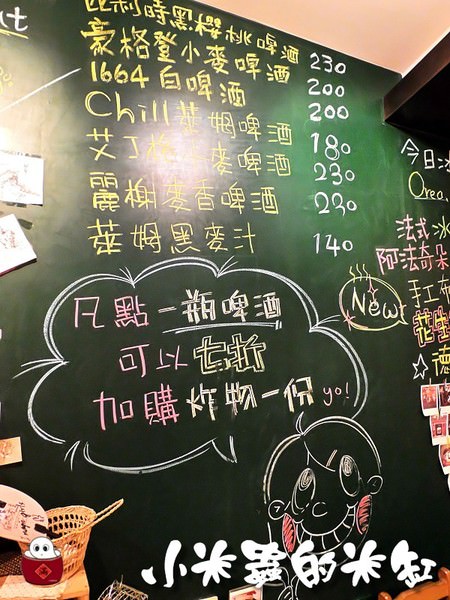 比利時黑櫻桃啤酒 230
豪格登小麥啤酒 200
1664白啤酒 200
Chill萊姆啤酒 180
艾丁格小麥啤酒 230
麗榭麥香啤酒 230
萊姆黑麥汁 140
凡點一瓶啤酒
可以七折
加購炸物一份 yo!
今日冰
Oreo
法式冰
阿法奇朵
New
手工
花生
☆德
小米蟲的米缸